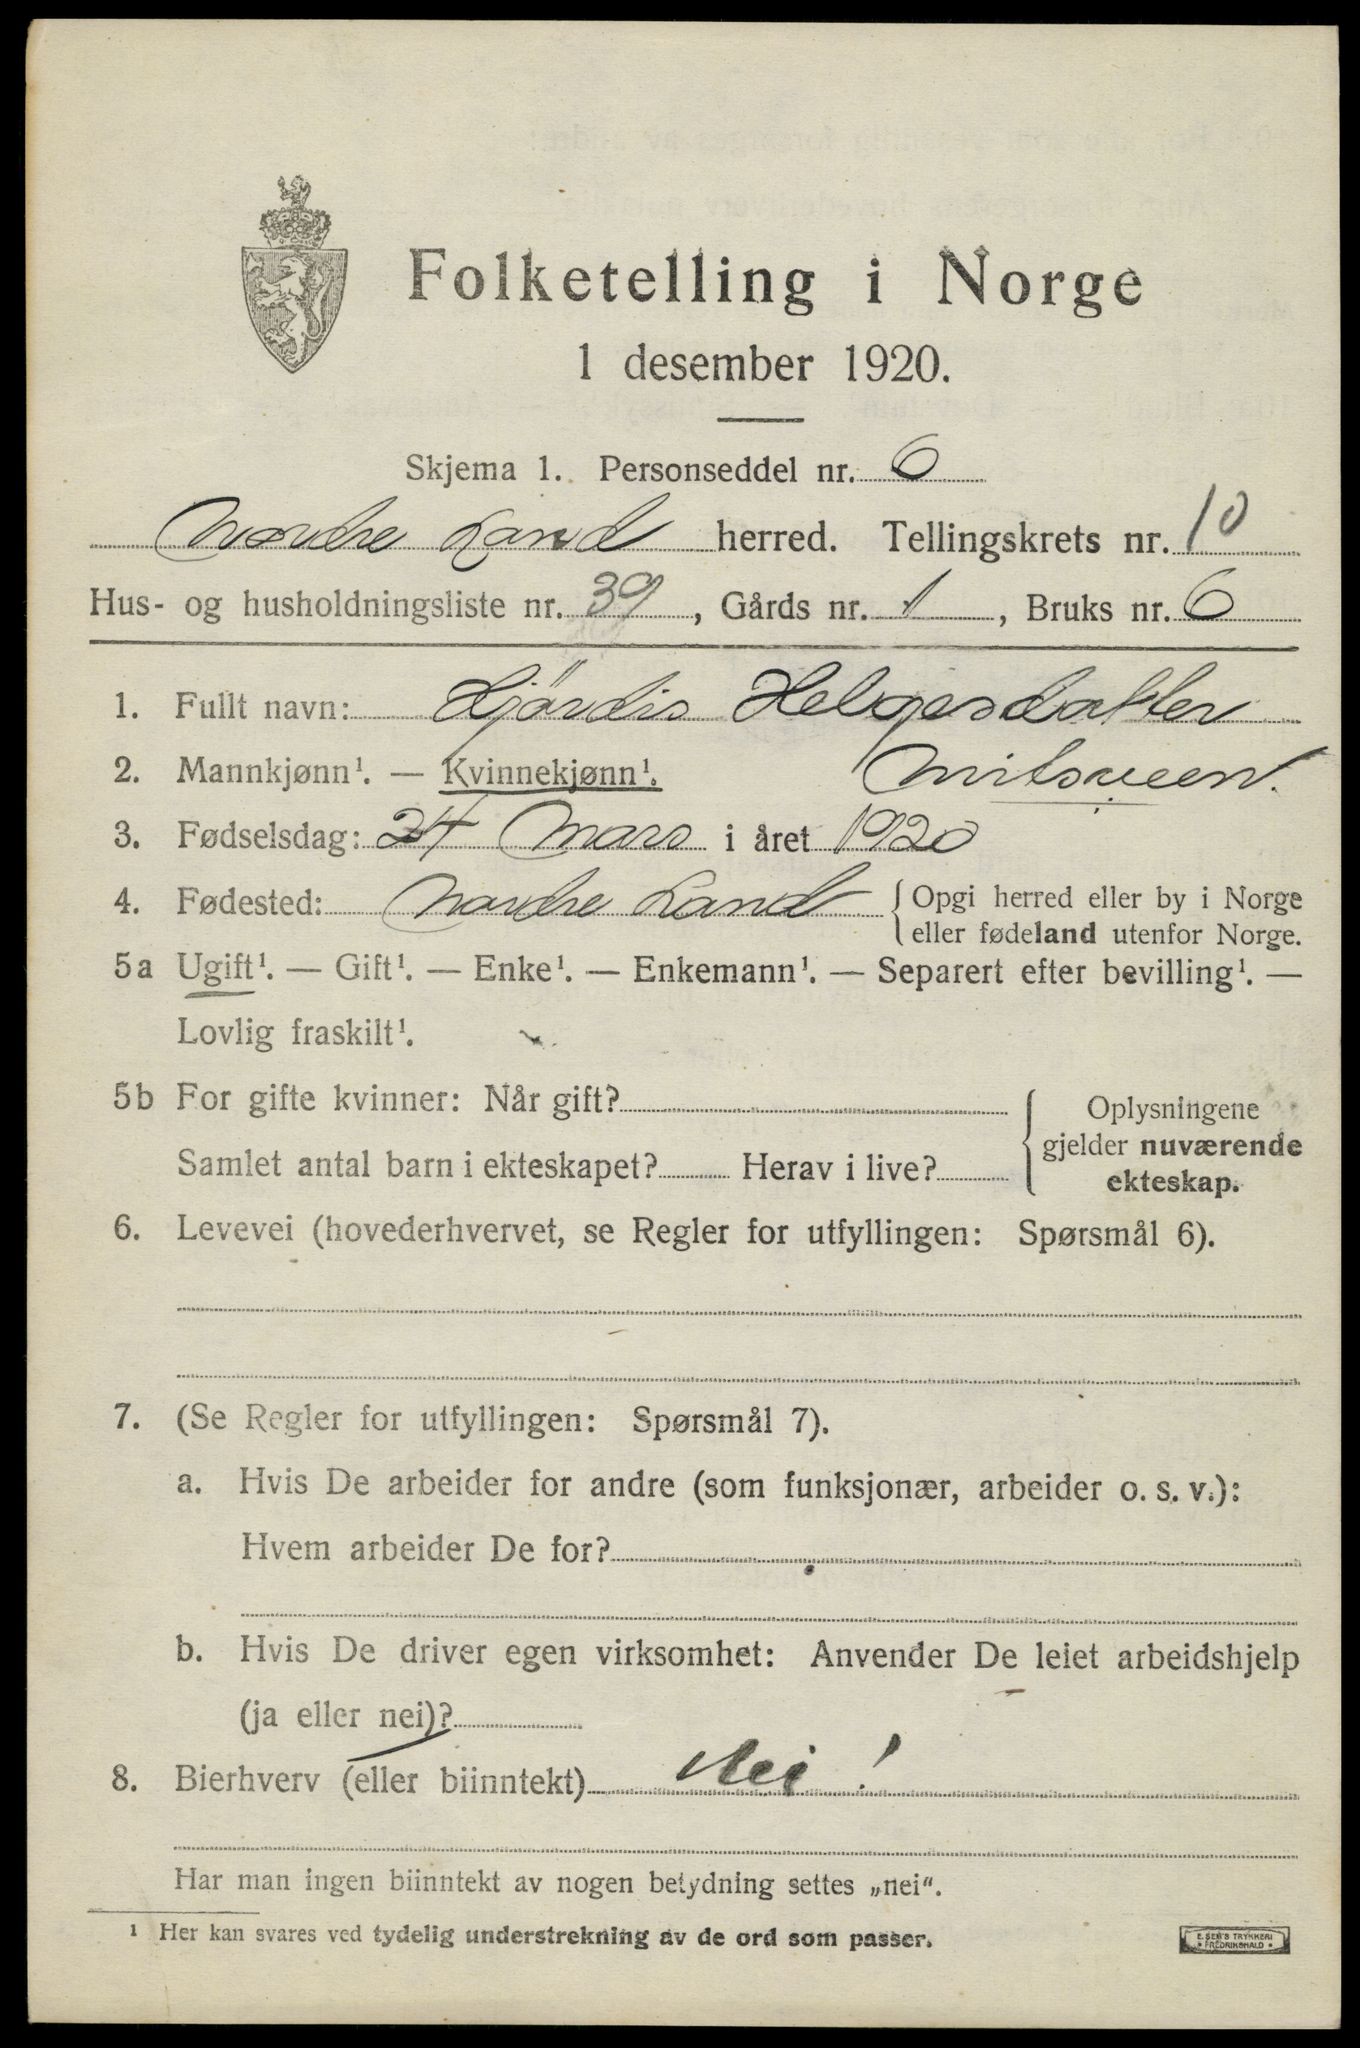 Folketelling i Norge
1 desember 1920.
Skjema 1. Personseddel nr. 6
Nordre Land herred. Tellingskrets nr. 10
Hus- og husholdningsliste nr. 39, Gårds nr. 1, Bruks nr. 6
1. Fullt navn: Hjördis Helgesdatter
2. Mannkjønn¹. — Kvinnekjønn¹.
3. Fødselsdag: 24 Mars i året 1920
4. Fødested: Nordre Land { Opgi herred eller by i Norge
eller fødeland utenfor Norge.
5a Ugift¹. — Gift¹. — Enke¹. — Enkemann¹. — Separert efter bevilling¹. —
Lovlig fraskilt¹.
5b For gifte kvinner: Når gift?
Samlet antal barn i ekteskapet? Herav i live?
{ Oplysningene
gjelder nuværende
ekteskap.
6. Levevei (hovederhvervet, se Regler for utfyllingen: Spørsmål 6).
7. (Se Regler for utfyllingen: Spørsmål 7).
a. Hvis De arbeider for andre (som funksjonær, arbeider o. s. v.):
Hvem arbeider De for?
b. Hvis De driver egen virksomhet: Anvender De leiet arbeidshjelp
(ja eller nei)?
8. Bierhverv (eller biinntekt) Nei!
Har man ingen biinntekt av nogen betydning settes „nei“.
¹ Her kan svares ved tydelig understrekning av de ord som passer.
E. SEM'S TRYKKERI
• FREDRIKSHALD •